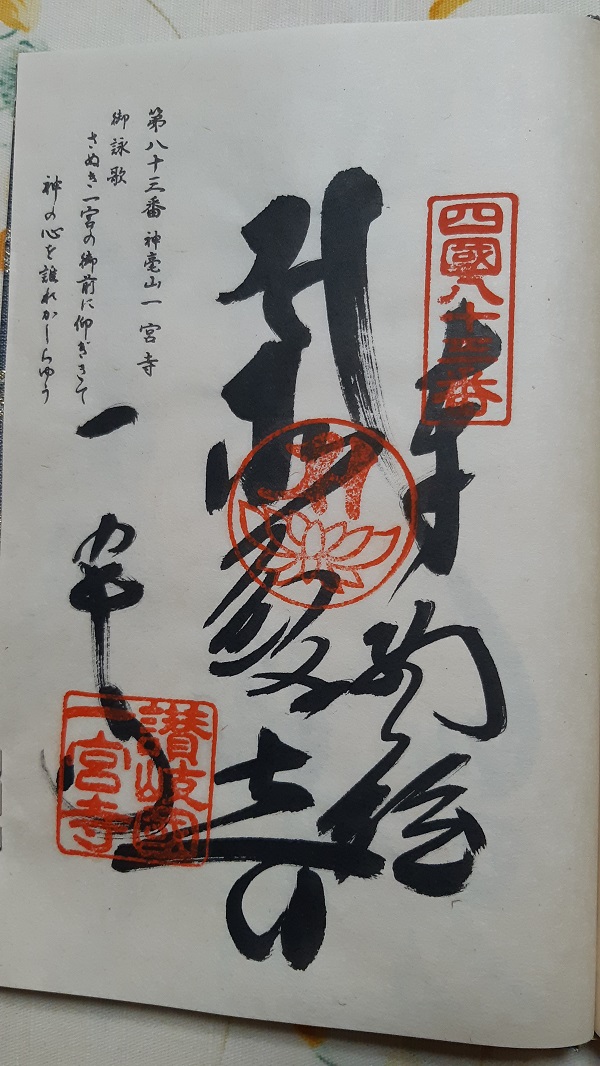 四國八十三番
奉納経
第八十三番 神毫山一宮寺
御詠歌
さぬき一宮の御前に仰ぎきて
神の心を誰れかしらゆう
一宮寺
讃岐國
一宮寺